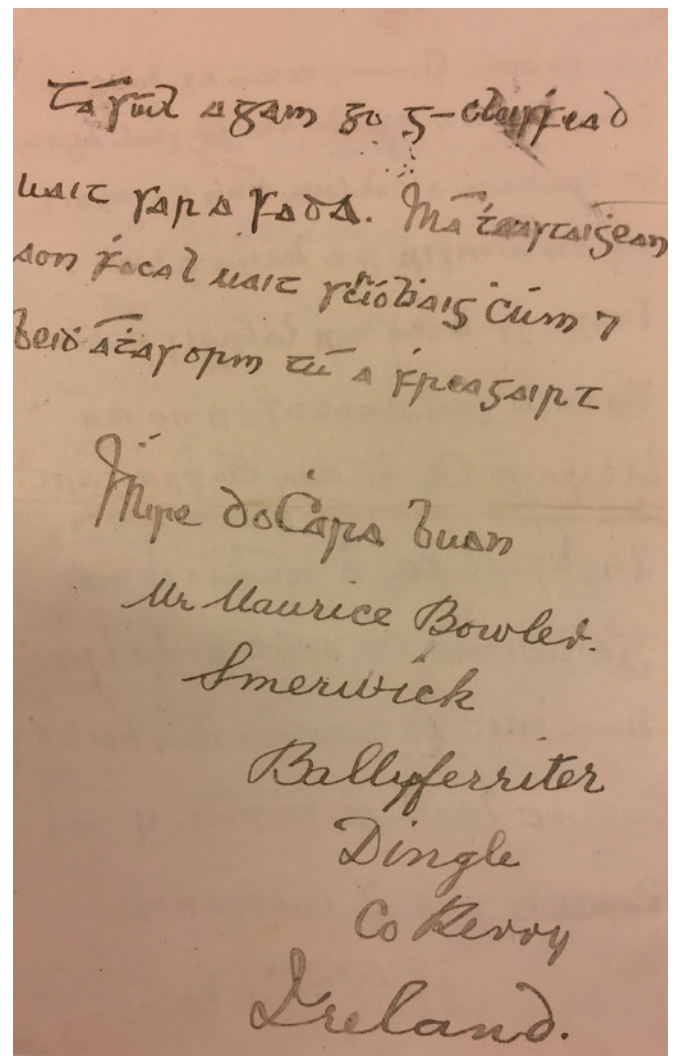 Tá súil agam go
uait sar a fada. Má
aon ḟocal uait ċúm ⁊
beiḋ áṫas orm tú a ḟreagairt
Mise do Ċara buan
Mr Maurice Bowler.
Smerwick
Ballyferriter
Dingle
Co Kerry
Ireland.